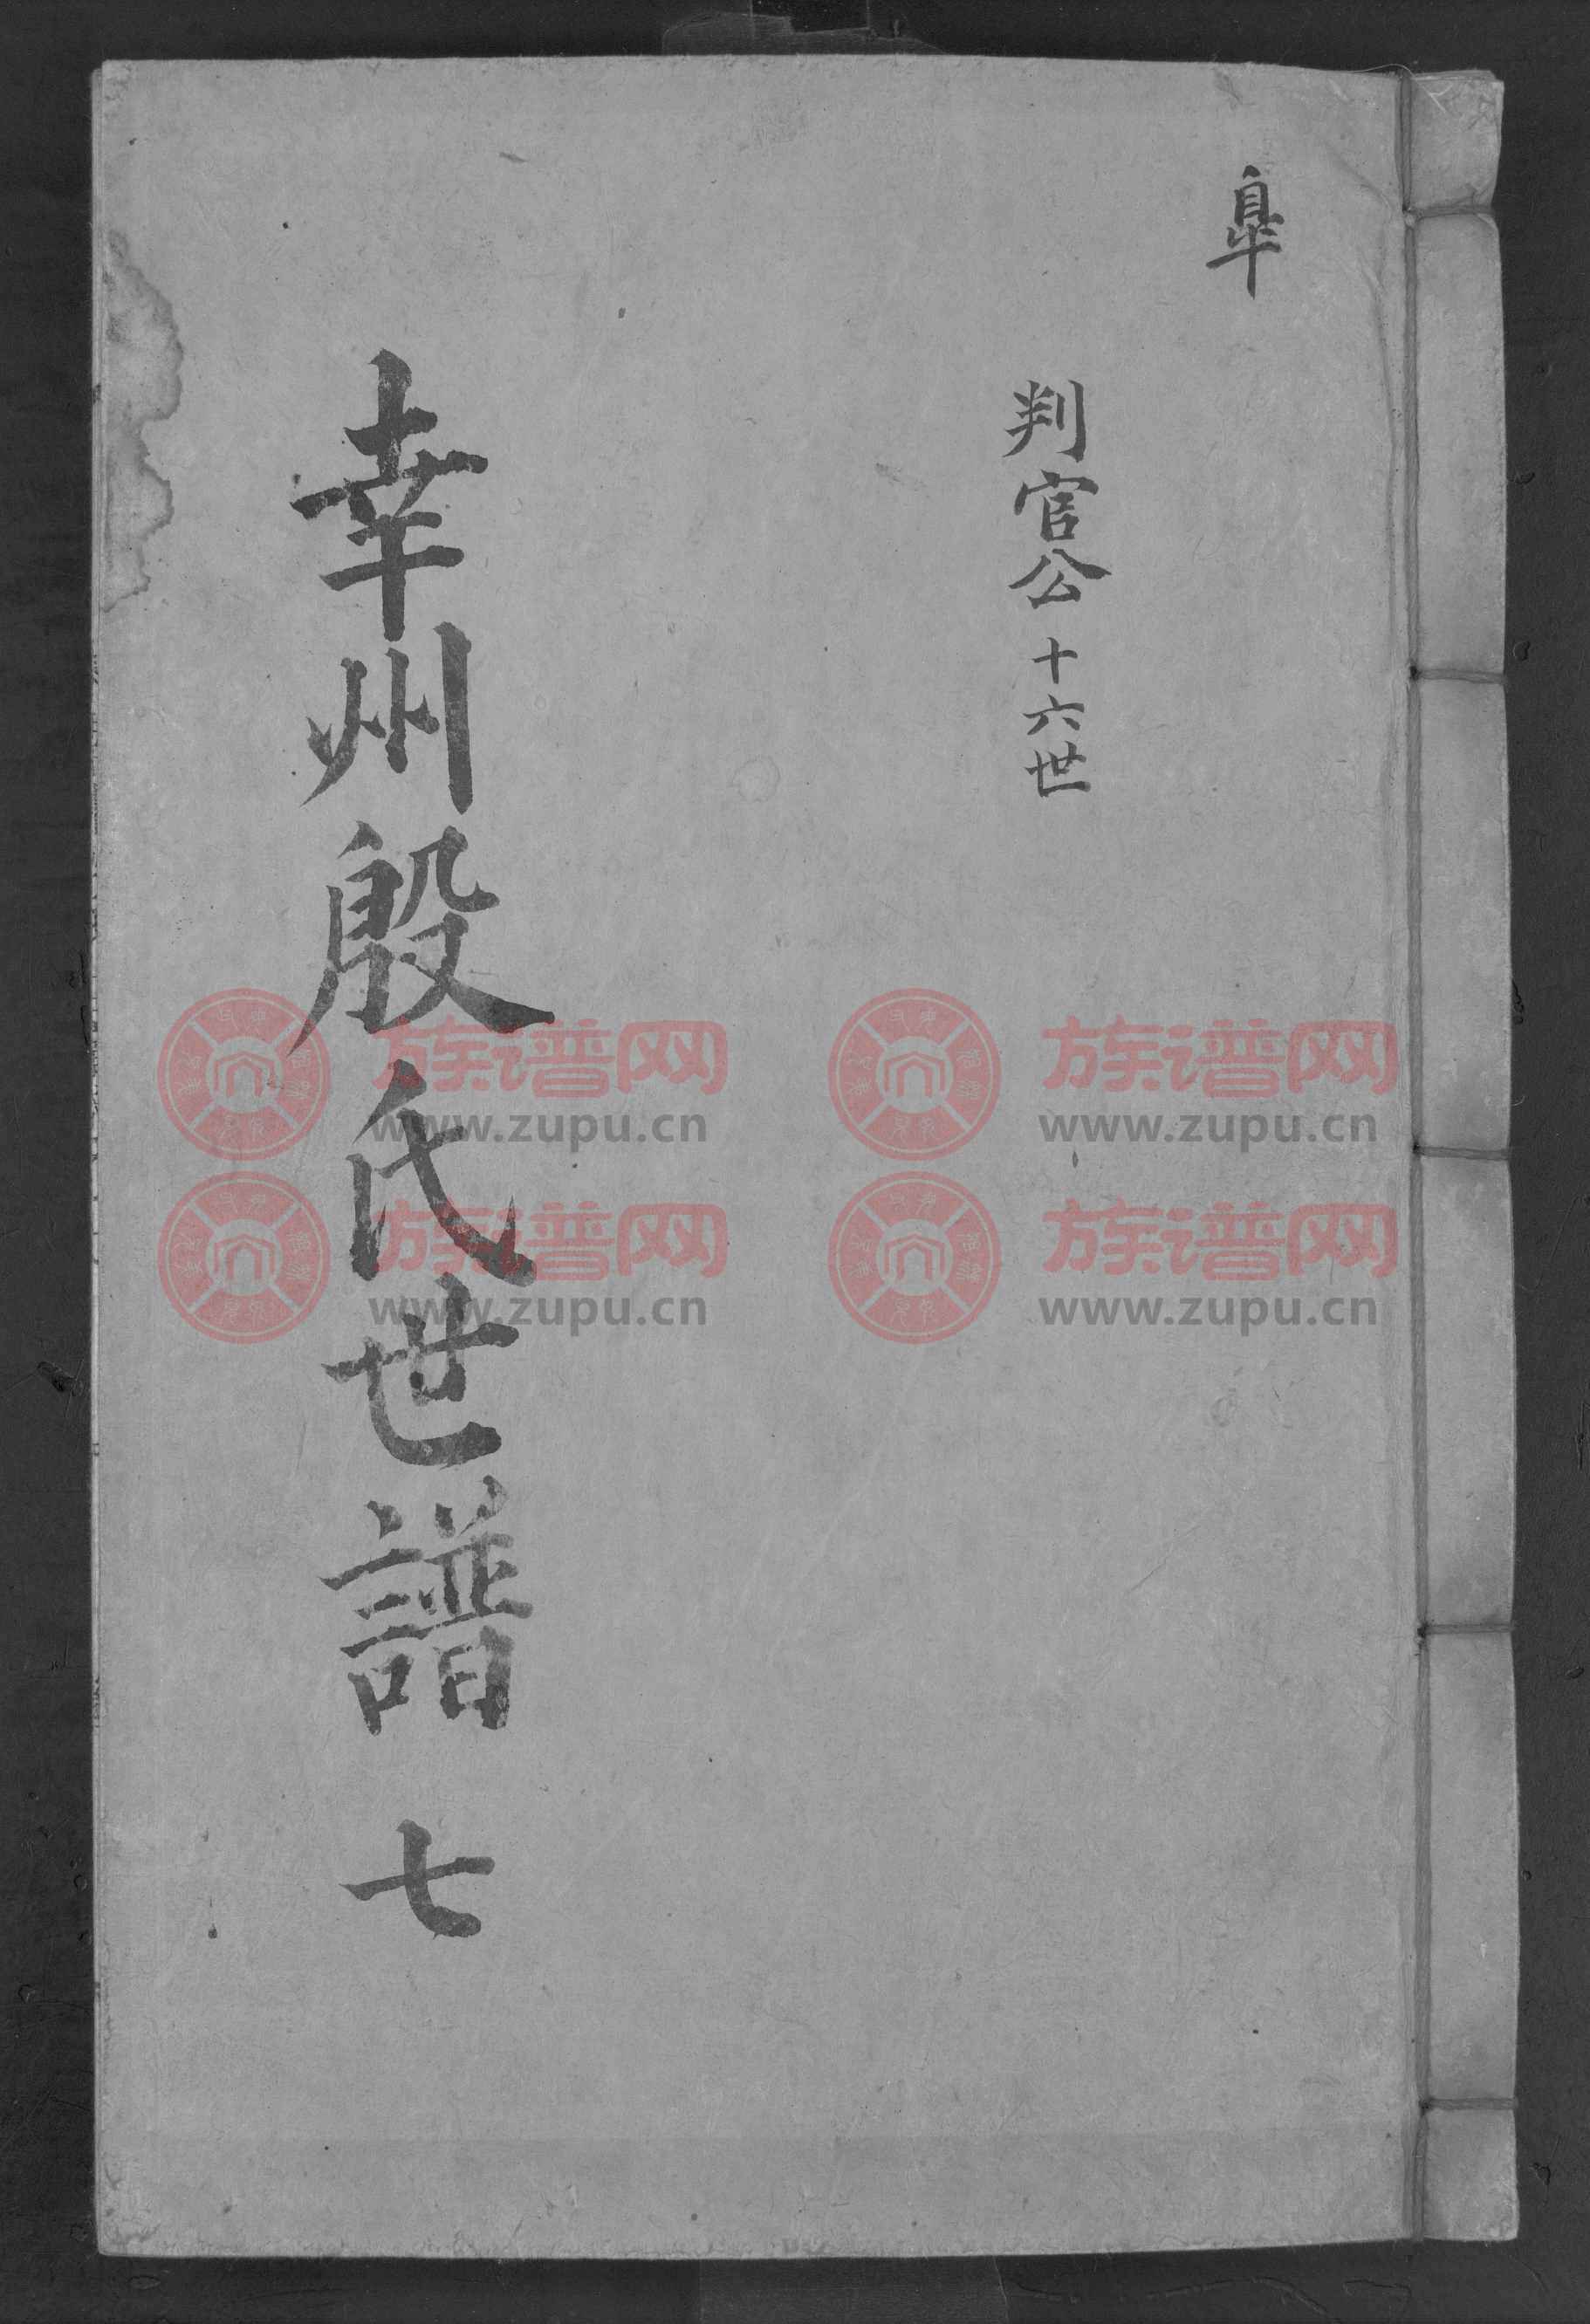 皐
判官公 十六世
幸州殷氏世譜 七
族谱网
www.zupu.cn
族谱网
www.zupu.cn
族谱网
www.zupu.cn
族谱网
www.zupu.cn